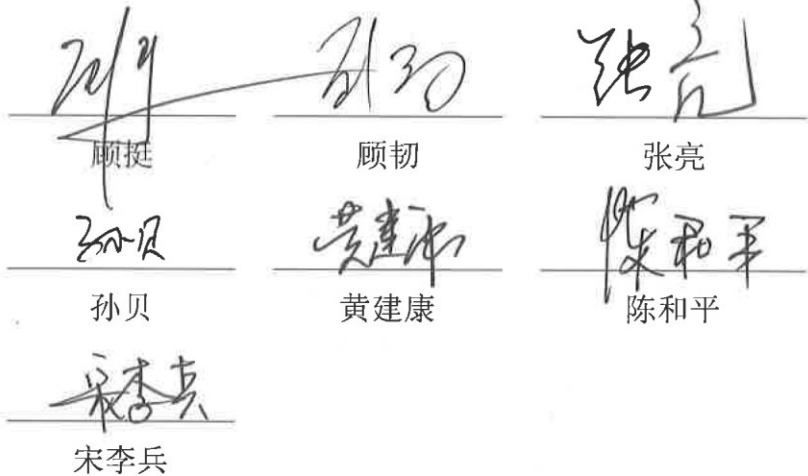 顾挺 顾韧 张亮
孙贝 黄建康 陈和平
宋李兵